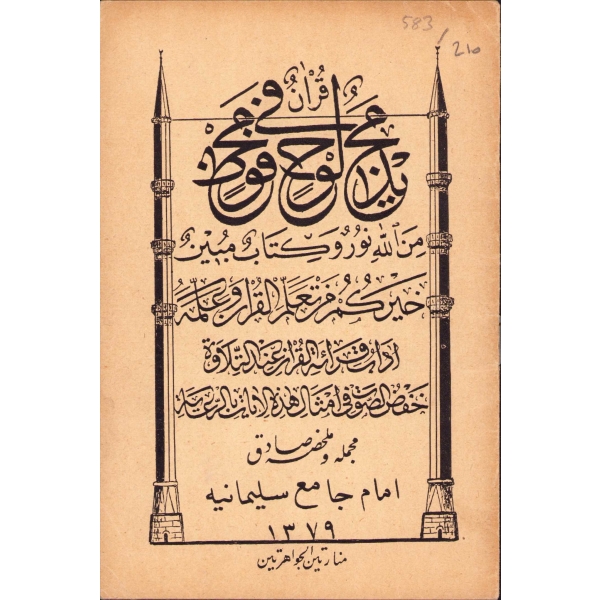 583 / 210
قُرْاٰنٌ
مَجِيدٌ فِي لَوْحٍ مَحْفُوظٍ
مِنَ ٱللّٰهِ نُورٌ وَكِتَابٌ مُبِينٌ
خَيْرُكُمْ مَنْ تَعَلَّمَ الْقُرْاٰنَ وَعَلَّمَهُ
اداب قرائة القرآن عند التلاوة
خفض الصوت فى امثال هذه الايات بالرعية
مجمله و ملخصه صادق
امام جامع سليمانيه
١٣٧٩
منارتين الجواهرتين